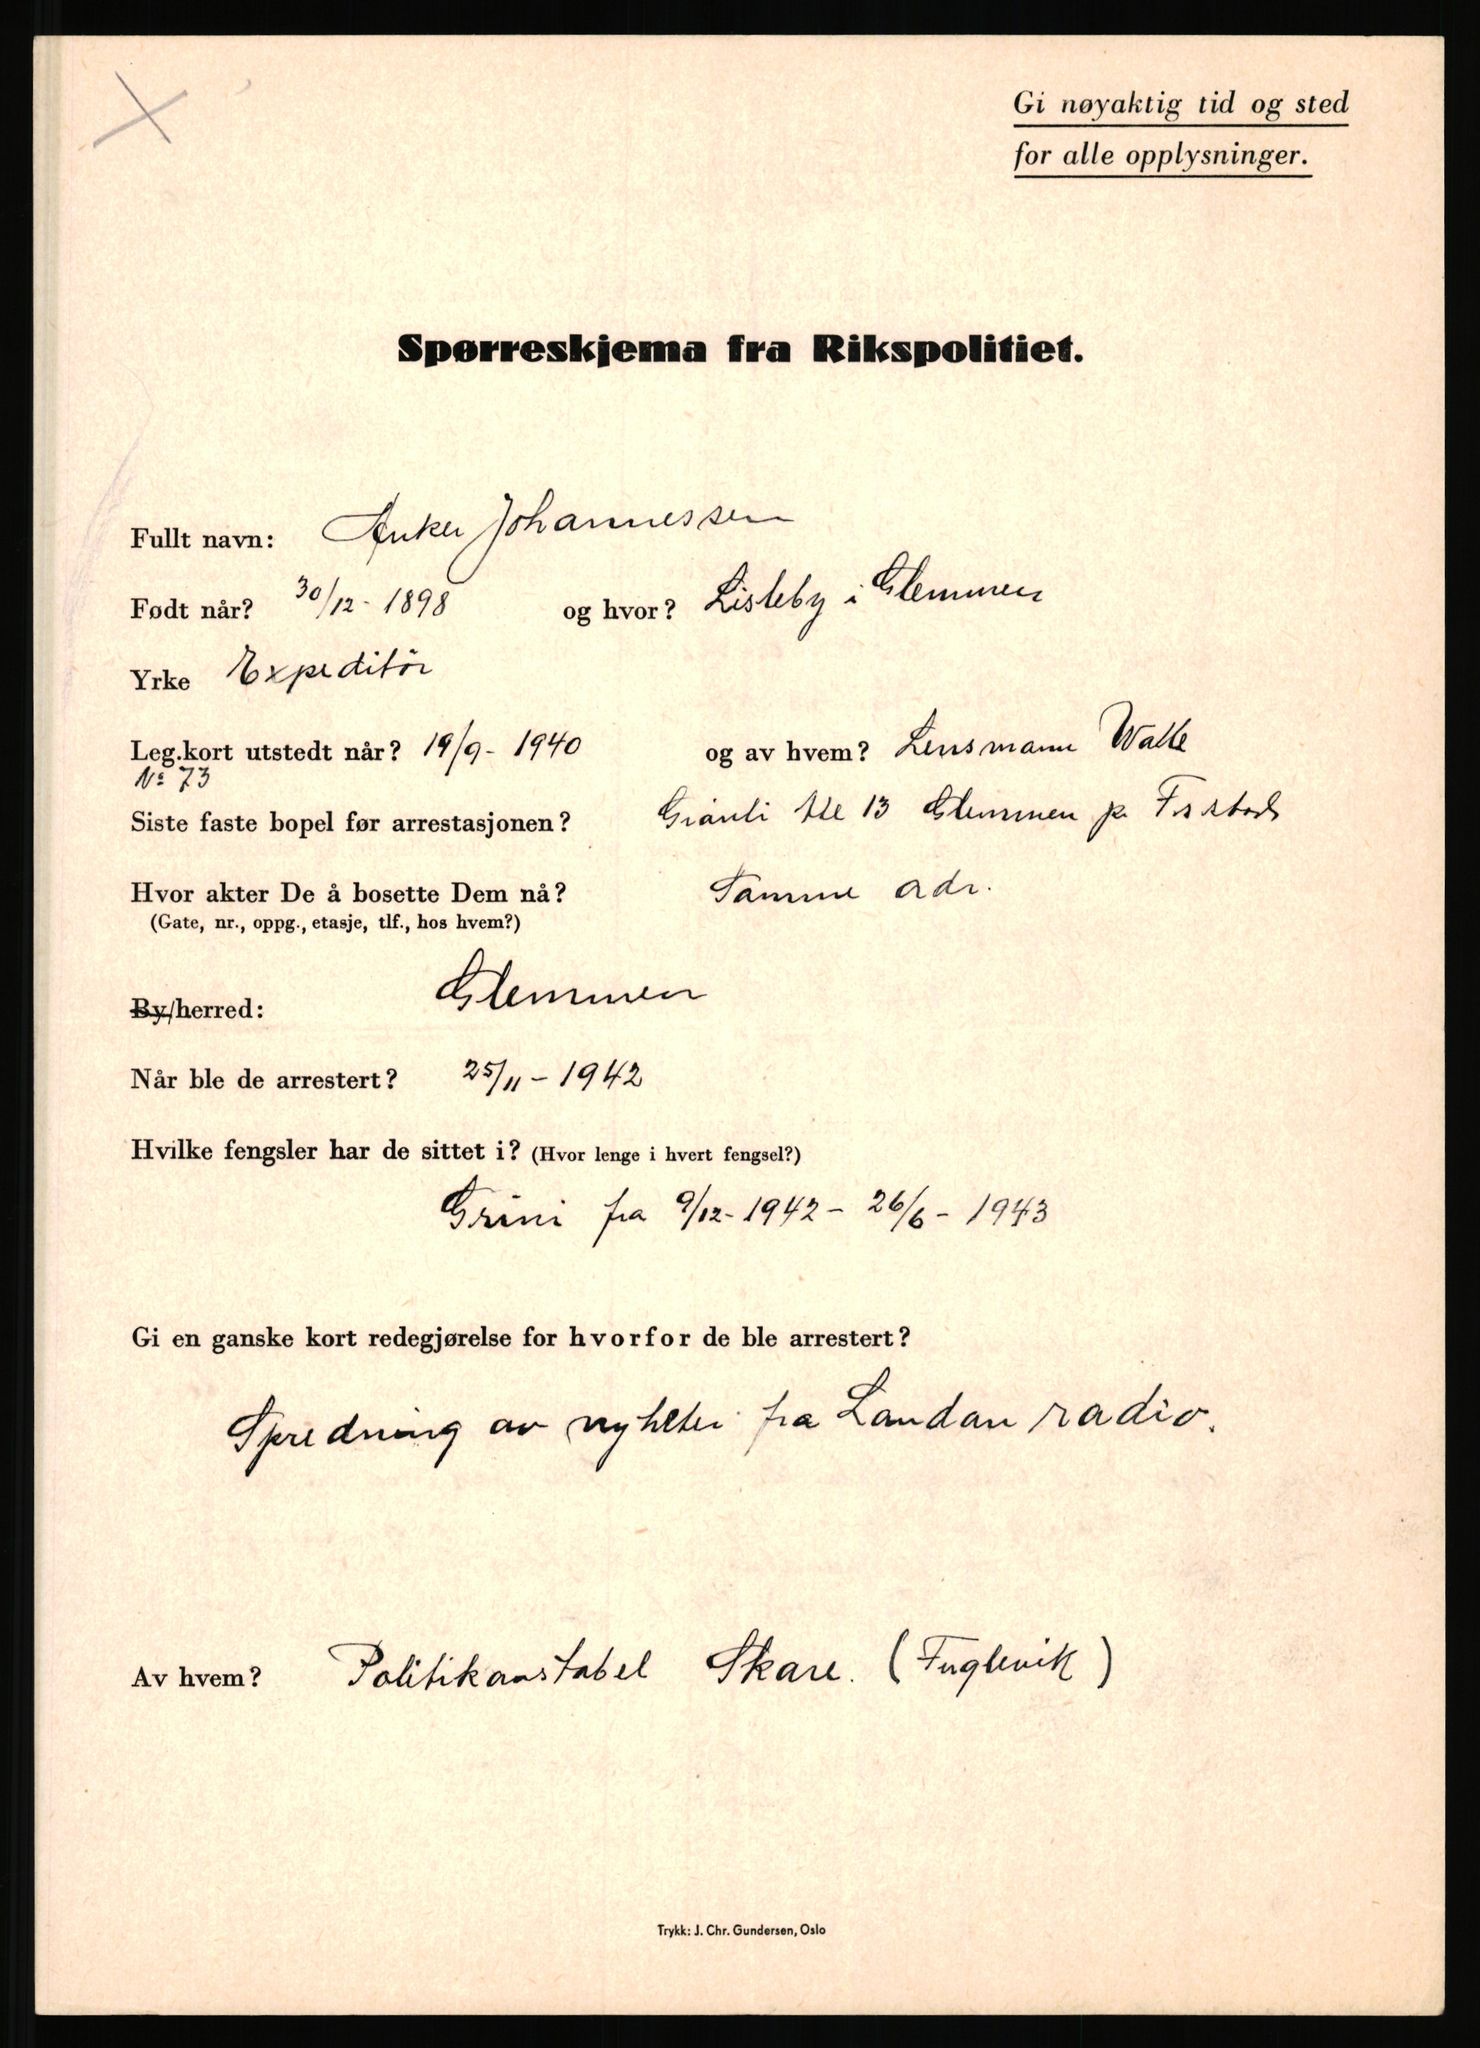 Gi nøyaktig tid og sted
for alle opplysninger.
Spørreskjema fra Rikspolitiet.
Fullt navn: Anker Johannessen
Født når? 30/12 - 1898 og hvor? Lisleby i Glemmen
Yrke Expeditør
Leg.kort utstedt når? 19/9 - 1940 og av hvem? Lensmann Walle
No 73
Siste faste bopel før arrestasjonen? 13 Glemmen pr Fr.stad
Hvor akter De å bosette Dem nå? Samme adr.
(Gate, nr., oppg., etasje, tlf., hos hvem?)
By/herred: Glemmen
Når ble de arrestert? 25/11 - 1942
Hvilke fengsler har de sittet i? (Hvor lenge i hvert fengsel?)
Grini fra 9/12 - 1942 - 26/6 - 1943
Gi en ganske kort redegjørelse for hvorfor de ble arrestert?
Spredning av nyheter fra Landan radio.
Av hvem? Politikonstabel Skare. (Fuglevik)
Trykk: J. Chr. Gundersen, Oslo